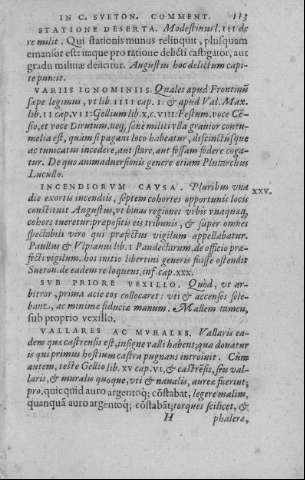 IN C. SVETON. COMMENT. 113
STATIONE DESERTA. Modestinus l. III de
re milit. Qui stationis munus relinquit, plusquam
emansor est: itaque pro ratione delicti castigatur, aut
gradu militiæ deiicitur. Augustus hoc delictum capi-
te puniit.
VARIIS IGNOMINIIS. Quales apud Frontinū
sæpe legimus, vt lib. IIII cap. I. & apud Val. Max.
lib. II cap. VII: Gellium lib. X, c. VIII: Festum. voce Cē-
sio, et voce Dirutum, neq; sanè militi vlla grauior contu-
melia est, quàm si pagani loco habeatur, discinctúsque
ac tunicatus incedere, aut stare, aut fossam fodere coga-
tur. De quo animaduersionis genere etiam Plutarchus
Lucullo.
INCENDIORVM CAVSA. Pluribus vna
die exortis incendiis, septem cohortes opportunis locis
constituit Augustus, vt binas regiones vrbis vnaquæq,
cohors tueretur: præpositis eis tribunis, & super omnes
spectabili viro qui præfectus vigilum appellabatur.
Paullus & Vlpianus lib. I Pandectarum, de officio præ-
fecti vigilum. hos initio libertini generis fuisse ostendit
Sueton. de eadem re loquens, inf. cap. XXX.
XXV.
SVB PRIORE VEXILLO. Quod, vt ar-
bitror, prima acie eos collocaret: vti & accensos sole-
banz, ac minimæ fiduciæ manum. Mallem tamen,
sub proprio vexillo.
VALLARES AC MVRALES. Vallaris ea-
dem quæ castrensis est, insigne valli habens; qua donatur
is qui primus hostium castra pugnans introiuit. Cùm
autem, teste Gellio lib. XV cap. VI, & castrēsis, seu val-
laris, & muralis quoque, vti & naualis, aureæ fuerint;
pro, quicquid auro argentoq; cōstabat, legere malim,
quanquā auro argentoq; cōstabāt; torques scilicet, &
H phaleræ,